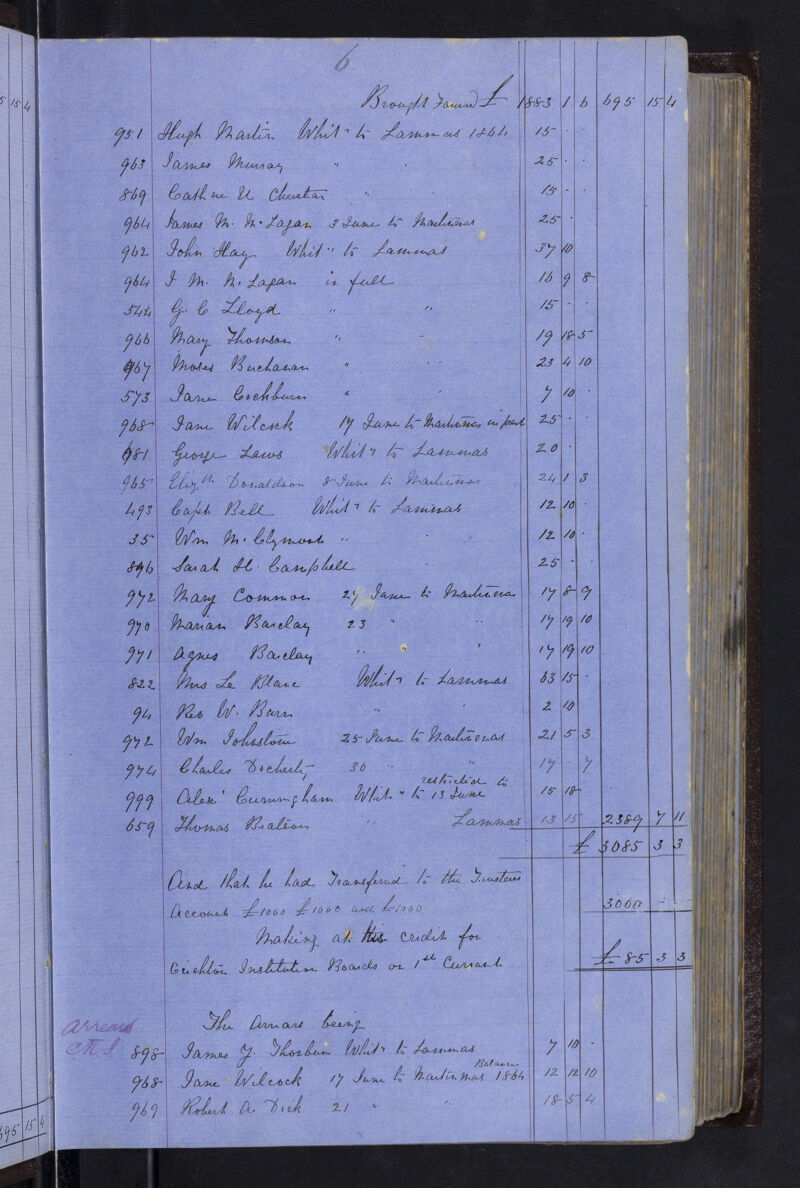 6
Brought Forward £ 1883 1 6 695 15 4
951 Hugh Martin Whity to Lammas 1864 15 . .
963 James Murray " " 25 . .
869 Cath ne " 15 - .
964 James M. McLagan 3 June to Martinmas 25 .
962 John Hay Whity to Lammas 37 10
964 J M. McLagan in full 16 9 8
544 G. C Lloyd " " 15 . .
966 Mary Thomson " " 19 18 5
967 Moses Buchanan " " 23 4 10
573 Jane Cockburn " " 7 10 .
968 Jane Wilcock 17 June to Martinmas in part 25 . .
681 George Laws Whity to Lammas 20 .
965 Elizth Donaldson 8 June to Martinmas 24 1 3
493 Capt Bell Whity to Lammas 12 10 .
35 Wm McClymont " " 12 10 .
896 Sarah H. Campbell " 25 . .
972 Mary Common 27 June to Martinmas 17 8 9
970 Marian Barclay 23 " " 17 19 10
971 Agnes Barclay " " " 17 19 10
822 Mrs Le Blanc Whity to Lammas 63 15 .
94 Rev W. Burn " " 2 10
972 Wm Johnstone 25 June to Martinmas 21 5 3
974 Charles Docherty 30 " " 17 - 7
999 Alexr Cunningham Whity " to 13 June restriction to 15 18
659 Thomas Beatson " Lammas 13 15 2389 7 11
£ 3085 3 3
And that he had Transferred to the Trustees
Account £1000 £1000 and £1000 3000 - -
Making at his credit for
Crichton Institution Boards on 1st Currant £ 85 3 3
The Arrears being
Arrears
C R I
898 James Y. Thorburn Whity to Lammas 7 10 .
968 Jane Wilcock 17 June to Martinmas 1864 Balance 12 12 10
969 Robert A. Dick 21 " " 18 5 4
5 15 4
695 15 4